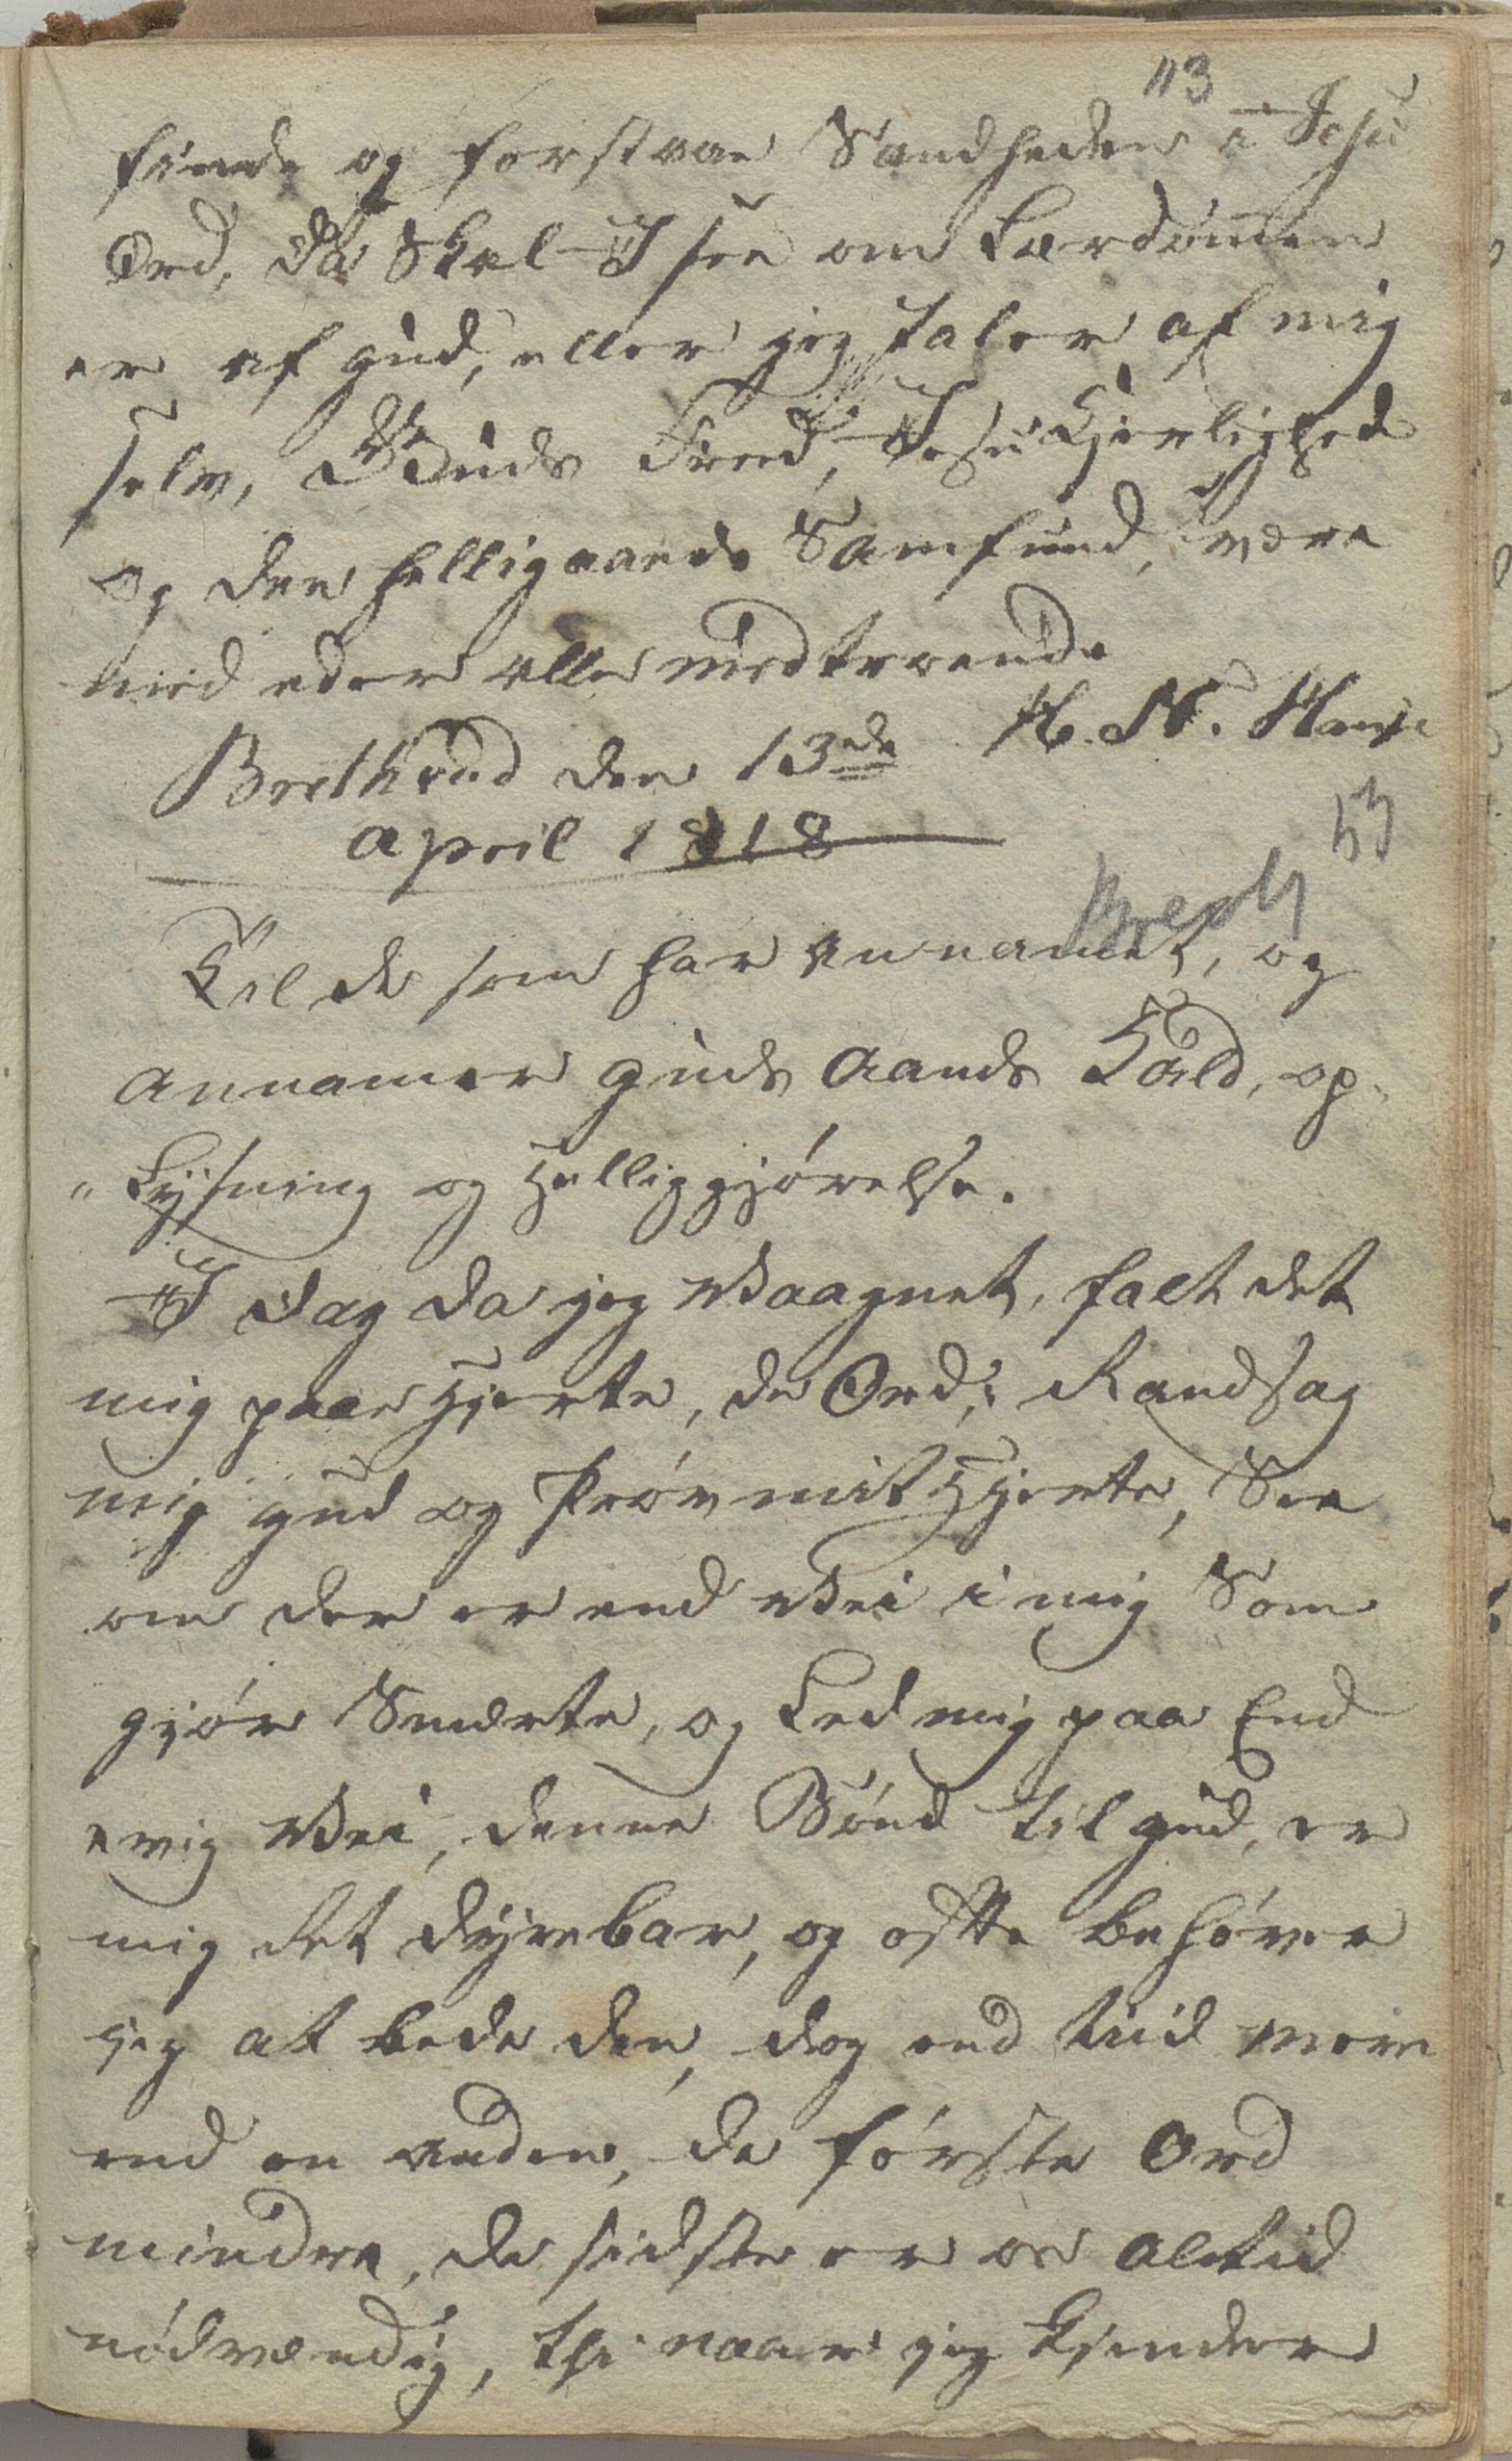 113
finde og forstaae Sandheden i Jesu
Ord, da Skal I see om Lærdommen
er af gud, eller jeg taler af mig
selv, Guds Fred, Jesu Kjerlighed
og den helligaands Samfund, være
med eder alle medtroende
H. N. Hauge
Bredtvedt den 13de
april 1818
53
Til de som har annamet, og
annamer guds Aands Kald, op-
"Lysning og Helliggjørelse.
I Dag da jeg Vaagnet, falt det
mig paa Hjerte, de Ord; Randsag
mig gud og Prøv mit Hjerte, See
om der er end Vei i mig Som
gjør Smerte, og Led mig paa End
evig Vei, denne Bønd til gud, er
mig det dyrebar, og ofte behøver
jeg at bede den, dog end tiid mere
end en anden, de første Ord
mindre, de sidste er os altid
nødvendig, thi naar jeg Kjender